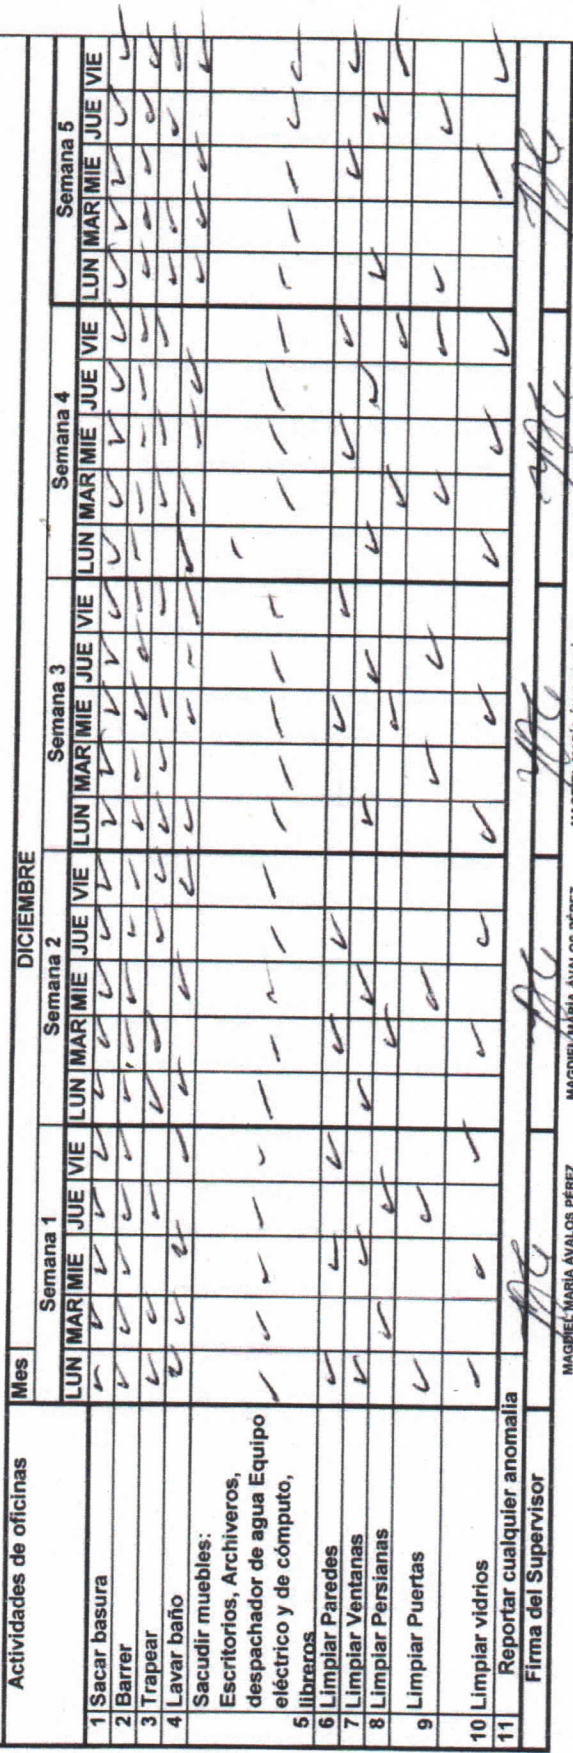 Actividades de oficinas Mes DICIEMBRE
Semana 1 Semana 2 Semana 3 Semana 4 Semana 5
LUN MAR MIE JUE VIE LUN MAR MIE JUE VIE LUN MAR MIE JUE VIE LUN MAR MIE JUE VIE LUN MAR MIE JUE VIE
1 Sacar basura
2 Barrer
3 Trapear
4 Lavar baño
Sacudir muebles:
Escritorios, Archiveros,
despachador de agua Equipo
eléctrico y de cómputo,
5 libreros
6 Limpiar Paredes
7 Limpiar Ventanas
8 Limpiar Persianas
9 Limpiar Puertas
10 Limpiar vidrios
11 Reportar cualquier anomalia
Firma del Supervisor
MAGDIEL MARÍA ÁVALOS PÉREZ MAGDIEL MARÍA ÁVALOS PÉREZ